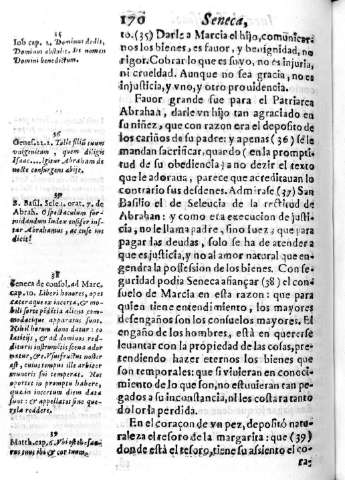 170 Seneca,
to. (35) Darle a Marcia el hijo, comunicar-
nos los bienes, es fauor, y benignidad, no
rigor. Cobrar lo que es suyo, no es injuria,
ni crueldad. Aunque no sea gracia, no es
injusticia, y vno, y otro prouidencia.
Fauor grande fue para el Patriarca
Abrahan, darle vn hijo tan agraciado en
su niñez, que con razon era el deposito de
los cariños de su padre; y apenas (36) se le
mandan sacrificar, quando (en la prompti-
tud de su obediencia) no dezir el texto
que le adoraua, parece que acreditauan lo
contrario sus desdenes. Admirase (37) San
Basilio el de Seleucia de la rectitud de
Abrahan: y como esta execucion de justi-
cia, no le llama padre, sino juez; que para
pagar las deudas, solo se ha de atender a
que es justicia, y no al amor natural que en-
gendra la possession de los bienes. Con se-
guridad podia Seneca afiançar (38) el con-
suelo de Marcia en esta razon: que para
quien tiene entendimiento, los mayores
desengaños son los consuelos mayores. El
engaño de los hombres, està en querer se
leuantar con la propiedad de las cosas, pre-
tendiendo hazer eternos los bienes que
son temporales: que si viuieran en conoci-
miento de lo que son, no estuuieran tan pe-
gados a su inconstancia, ni les costara tanto
dolor la perdida.
En el coraçon de vn pez, depositò natu-
raleza el tesoro de la margarita: que (39)
donde està el tesoro, tiene su assiento el co-
ra-
35
Iob cap. 1. Dominus dedit,
Dominus abstulit, sit nomen
Domini benedictum.
36
Genes. 22. 2. Tolle filiũ tuum
vnigenitum, quem diligis
Isaac.... Igitur Abraham de
nocte consurgens abijt.
37
B. Basil. Sele. orat. 7. de
Abrah. O spectaculum
Abrahamus, ac iuse
dicit!
38
Seneca de consol. ad Marc.
cap. 10. Liberi honores, opes
39
Matth. cap. 6. Vbi est thesau-
rus tuus ibi & cor tuum.